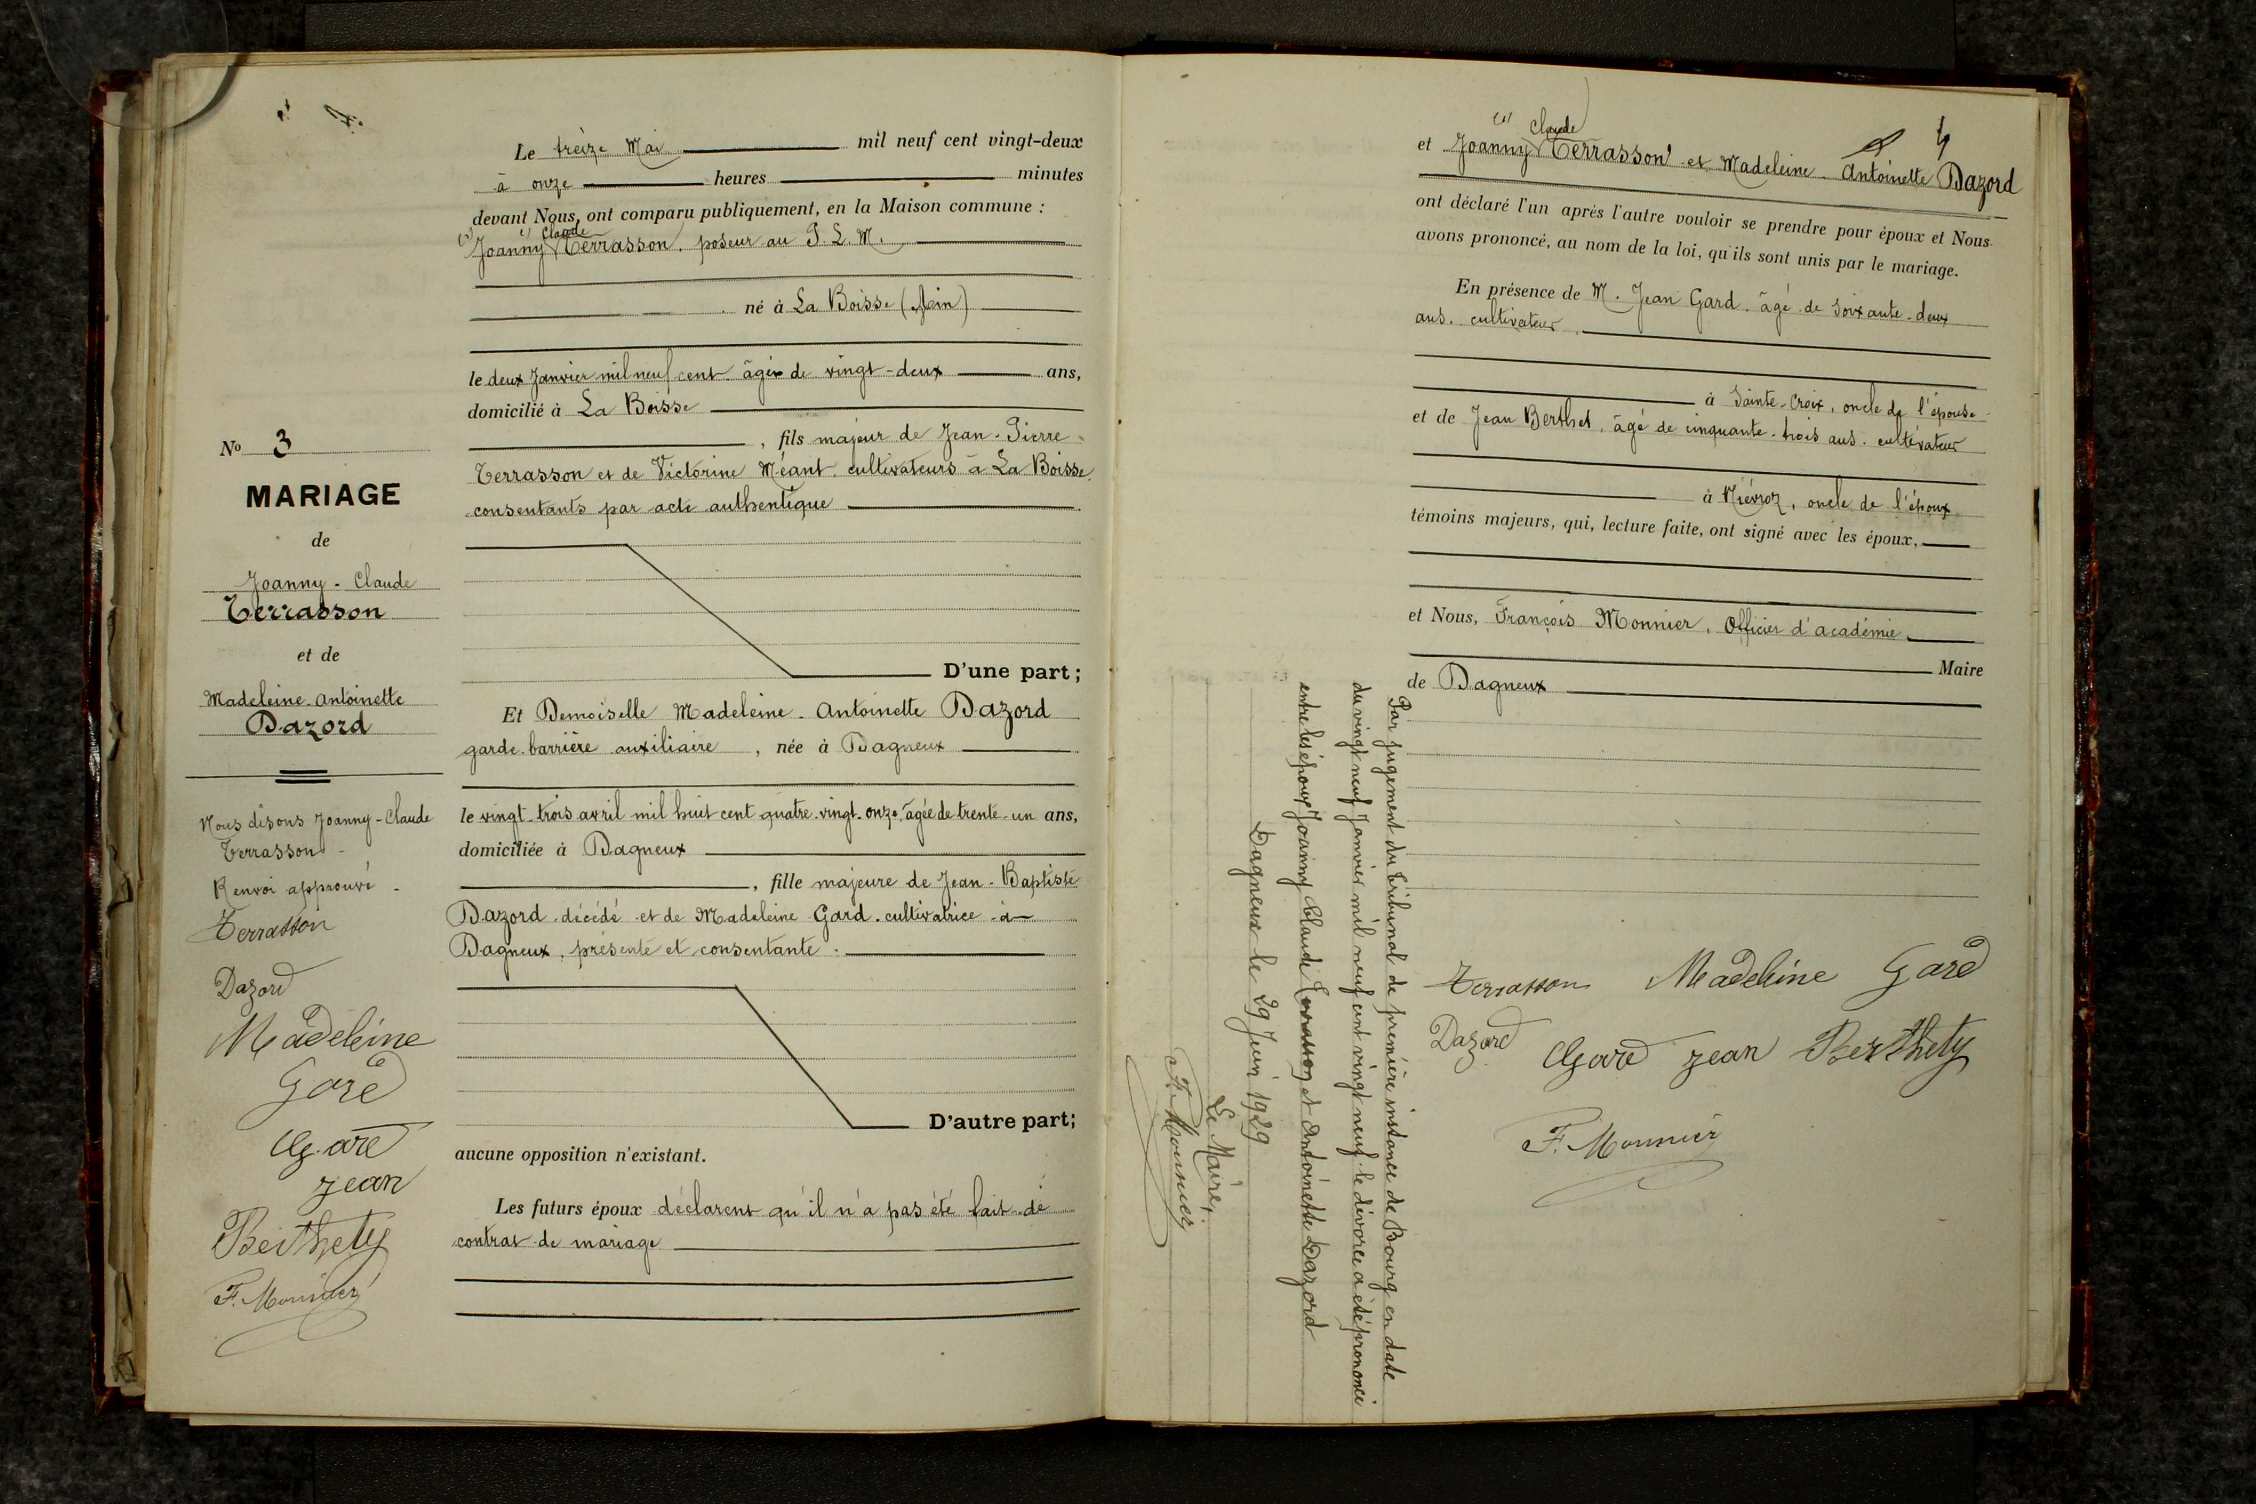 4.
Le treize Mai mil neuf cent vingt-deux
à onze heures minutes
devant Nous, ont comparu publiquement, en la Maison commune :
(1) Claude
Joanny Terrasson. poseur au P. L. M.
né à La Boisse (Ain)
le deux Janvier mil neuf cent âgé de vingt-deux ans,
domicilié à La Boisse
, fils majeur de Jean-Pierre
Terrasson et de Victorine Méant cultivateurs à La Boisse
consentants par acte authentique
D'une part ;
Et Demoiselle Madeleine-Antoinette Dazord
garde-barrière auxiliaire, née à Dagneux
le vingt-trois avril mil huit cent quatre-vingt-onze âgée de trente-un ans,
domiciliée à Dagneux
, fille majeure de Jean-Baptiste
Dazord décédé et de Madeleine Gard. cultivatrice à
Dagneux, présente et consentante.
D'autre part ;
aucune opposition n'existant.
Les futurs époux déclarent qu'il n'a pas été fait de
contrat de mariage
No 3
MARIAGE
de
Joanny-Claude
Terrasson
et de
Madeleine-Antoinette
Dazord
Nous disons Joanny-Claude
Terrasson
Renvoi approuvé
Terrasson
Dazord
Madeleine
Gard
Gard
Jean
Berthety
F. Monnier
4
(1) Claude
et Joanny Terrasson et Madeleine-Antoinette Dazord
ont déclaré l'un après l'autre vouloir se prendre pour époux et Nous
avons prononcé, au nom de la loi, qu'ils sont unis par le mariage.
En présence de M. Jean Gard. âgé de soixante-deux
ans. cultivateur
à Sainte-Croix, oncle de l'épouse
et de Jean Berthet, âgé de cinquante-trois ans. cultivateur
à Niévroz, oncle de l'époux
témoins majeurs, qui, lecture faite, ont signé avec les époux,
et Nous, François Monnier, Officier d'académie
Maire
de Dagneux
Terrasson Madeleine Gard
Dazord Gard Jean Berthety
F. Monnier
Par jugement du tribunal de première instance de Bourg en date
du vingt neuf Janvier mil neuf cent vingt neuf le divorce a été prononcé
entre les époux Joanny Claude Terrasson et Antoinette Dazord
Dagneux le 29 Juin 1929
Le Maire,
F. Monnier